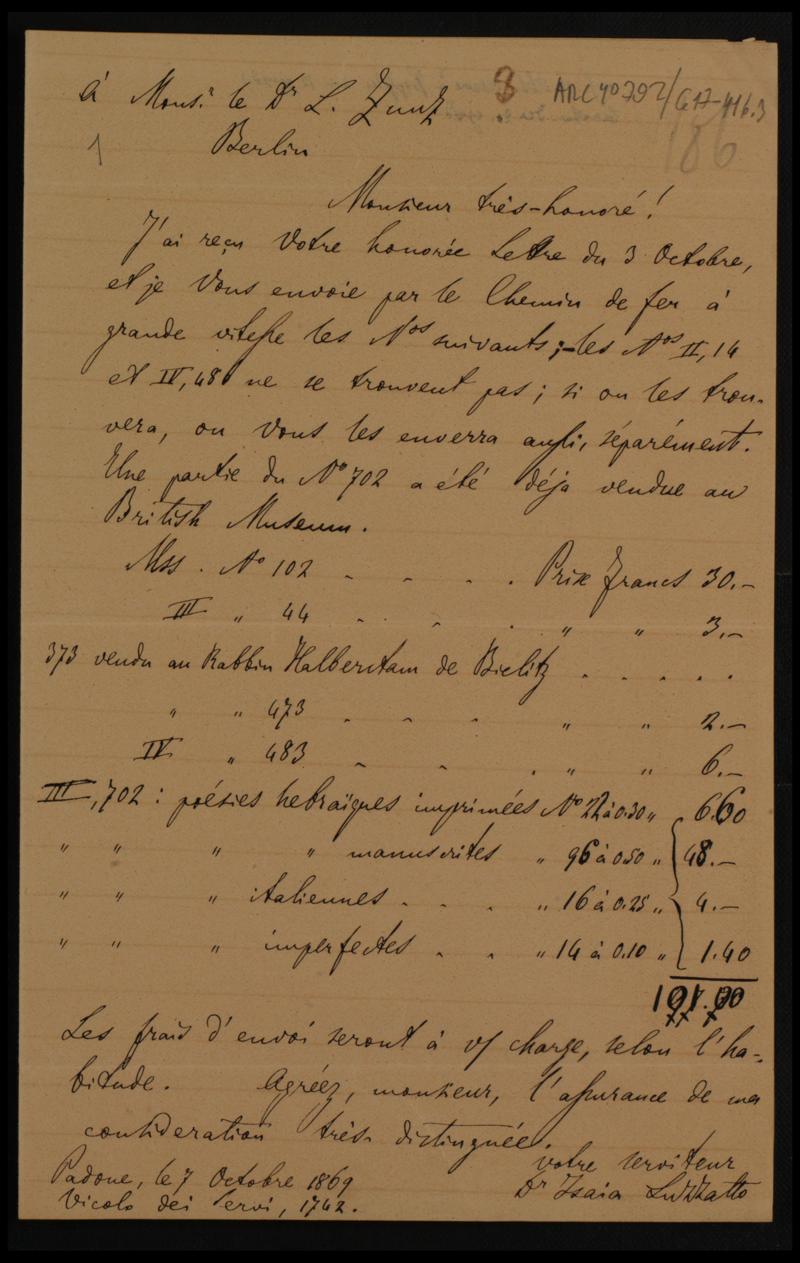 8 ARC 4° 792/G17-416.3
186
À Mons.r le Dr L. Zunz
1 Berlin
Monsieur très-honoré!
J'ai reçu Votre honorée Lettre du 3 Octobre,
et je Vous envoie par le Chemin de fer à
grande vitesse les Nos suivants;-les Nos II, 14
et IV, 48 ne se trouvent pas; si on les trou-
vera, on Vous les enverra aussi, séparément.
Une partie du No 702 a été déja vendue au
British Museum.
Mss. No 102 - - - . Prix Francs 30.-
III " 44 - - . " " 3.-
373 vendu au Rabbin Halberstam de Bielitz . . . . .
" " 473 - - - " " 2.-
IV " 483 - - . " " 6.-
III, 702: poésies hebraïques imprimées No 22 à 0.30 " 6.60
" " " " manuscrites " 96 à 0.50 " 48.-
" " " italiennes . . . " 16 à 0.25 " 4.-
" " " imperfectes . . " 14 à 0.10 " 1.40
101.00
Les frais d'envoi seront à v/ charge, selon l'ha-
bitude. Agréez, monsieur, l'assurance de ma
consideration très-distinguée.
votre serviteur
Padoue, le 7 Octobre 1869 Dr Isaia Luzzatto
Vicolo dei Servi, 1742.